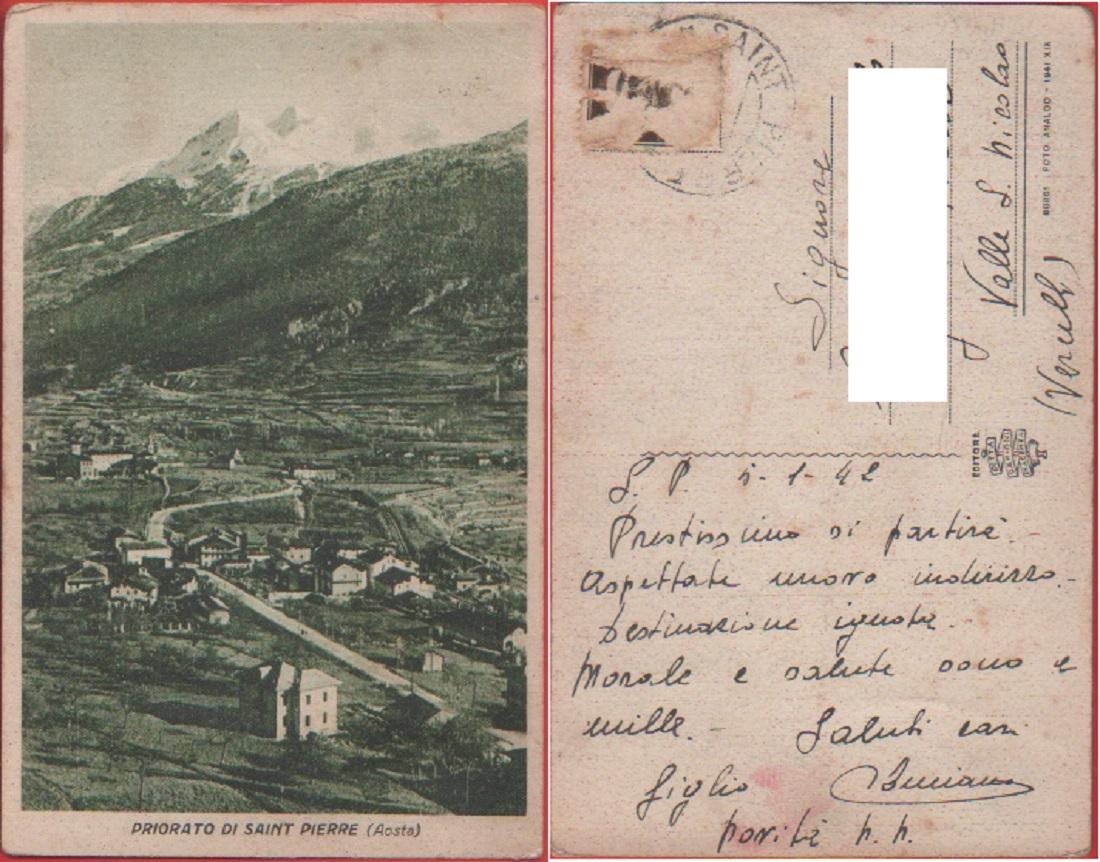 PRIORATO DI SAINT PIERRE (Aosta)
SAINT PIERRE
Signore
Valle S. Nicolao
(Vercelli)
FOTO ANALDO - 1941 XIX
EDITORE
S. P. 1-42
Prestissimo si partirà.
Aspettate nuovo indirizzo.
Destinazione ignota.
Morale e salute sono a
mille. Saluti cari
Giglio